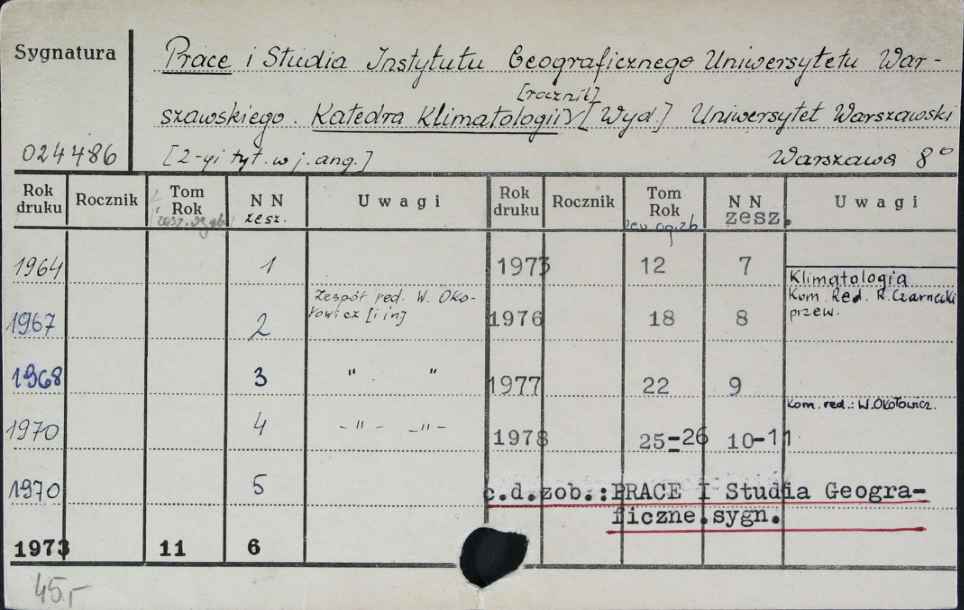 Sygnatura
Prace i Studia Instytutu Geograficznego Uniwersytetu War-
[rocznik]
szawskiego. Katedra Klimatologii [Wyd.] Uniwersytet Warszawski
024486 [2-gi tyt. w j. ang.] Warszawa 8°
Rok druku Rocznik Tom Rok NN zesz. Uwagi Rok druku Rocznik Tom Rok NN zesz. Uwagi
zesz. og. zb.
1964 1 1973 12 7
Klimatologia
Kom. Red. R. Czarnecki
przew.
Zespół red. W. Oko-
łowicz [i in]
1967 2 1976 18 8
1968 3 " " 1977 22 9
Kom. red.: W. Okołowicz.
1970 4 -"- -"- 1978 25-26 10-11
1970 5 c.d.zob.:PRACE I Studia Geogra-
ficzne.sygn.
1973 11 6
45,-